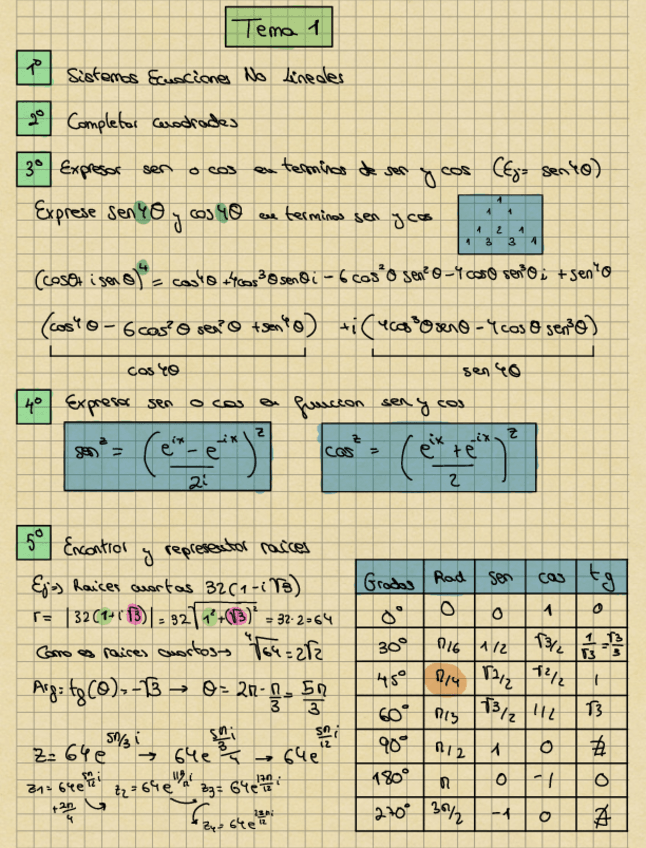 Tema 1
1º Sistemas Ecuaciones No Lineales
2º Completar cuadrados
3º Expresar sen o cos en terminos de sen y cos (Ej= sen4θ)
Exprese sen4θ y cos4θ en terminos sen y cos
1
1 1
1 2 1
1 3 3 1
(cosθ+isenθ)⁴ = cos⁴θ+4cos³θsenθi-6cos²θsen²θ-4cosθsen³θi+sen⁴θ
(cos⁴θ-6cos²θsen²θ+sen⁴θ) +i(4cos³θsenθ-4cosθsen³θ)
cos4θ sen4θ
4º Expresar sen o cos en funcion sen y cos
senᶻ = ((e^ix - e^-ix)/2i)^z cosᶻ = ((e^ix + e^-ix)/2)^z
5º Encontrar y representar raices
Ej=> Raices cuartas 32(1-i√3)
r= |32(1-i√3)| = 32√(1²+(√3)²) = 32·2=64
Como es raices cuartas→ ⁴√64=2√2
Arg= tg(θ)=-√3 → θ=2π-π/3=5π/3
z=64e^(5π/3 i) → 64e^((5π/3 i)/4) → 64e^(5π/12 i)
z1=64e^(5π/12 i) z2=64e^(11π/12 i) z3=64e^(17π/12 i)
+2π/4
z4=64e^(23π/12 i)
Grados Rad sen cos tg
0º 0 0 1 0
30º π/6 1/2 √3/2 1/√3=√3/3
45º π/4 √3/2 √2/2 1
60º π/3 √3/2 1/2 √3
90º π/2 1 0 ∄
180º π 0 -1 0
270º 3π/2 -1 0 ∄